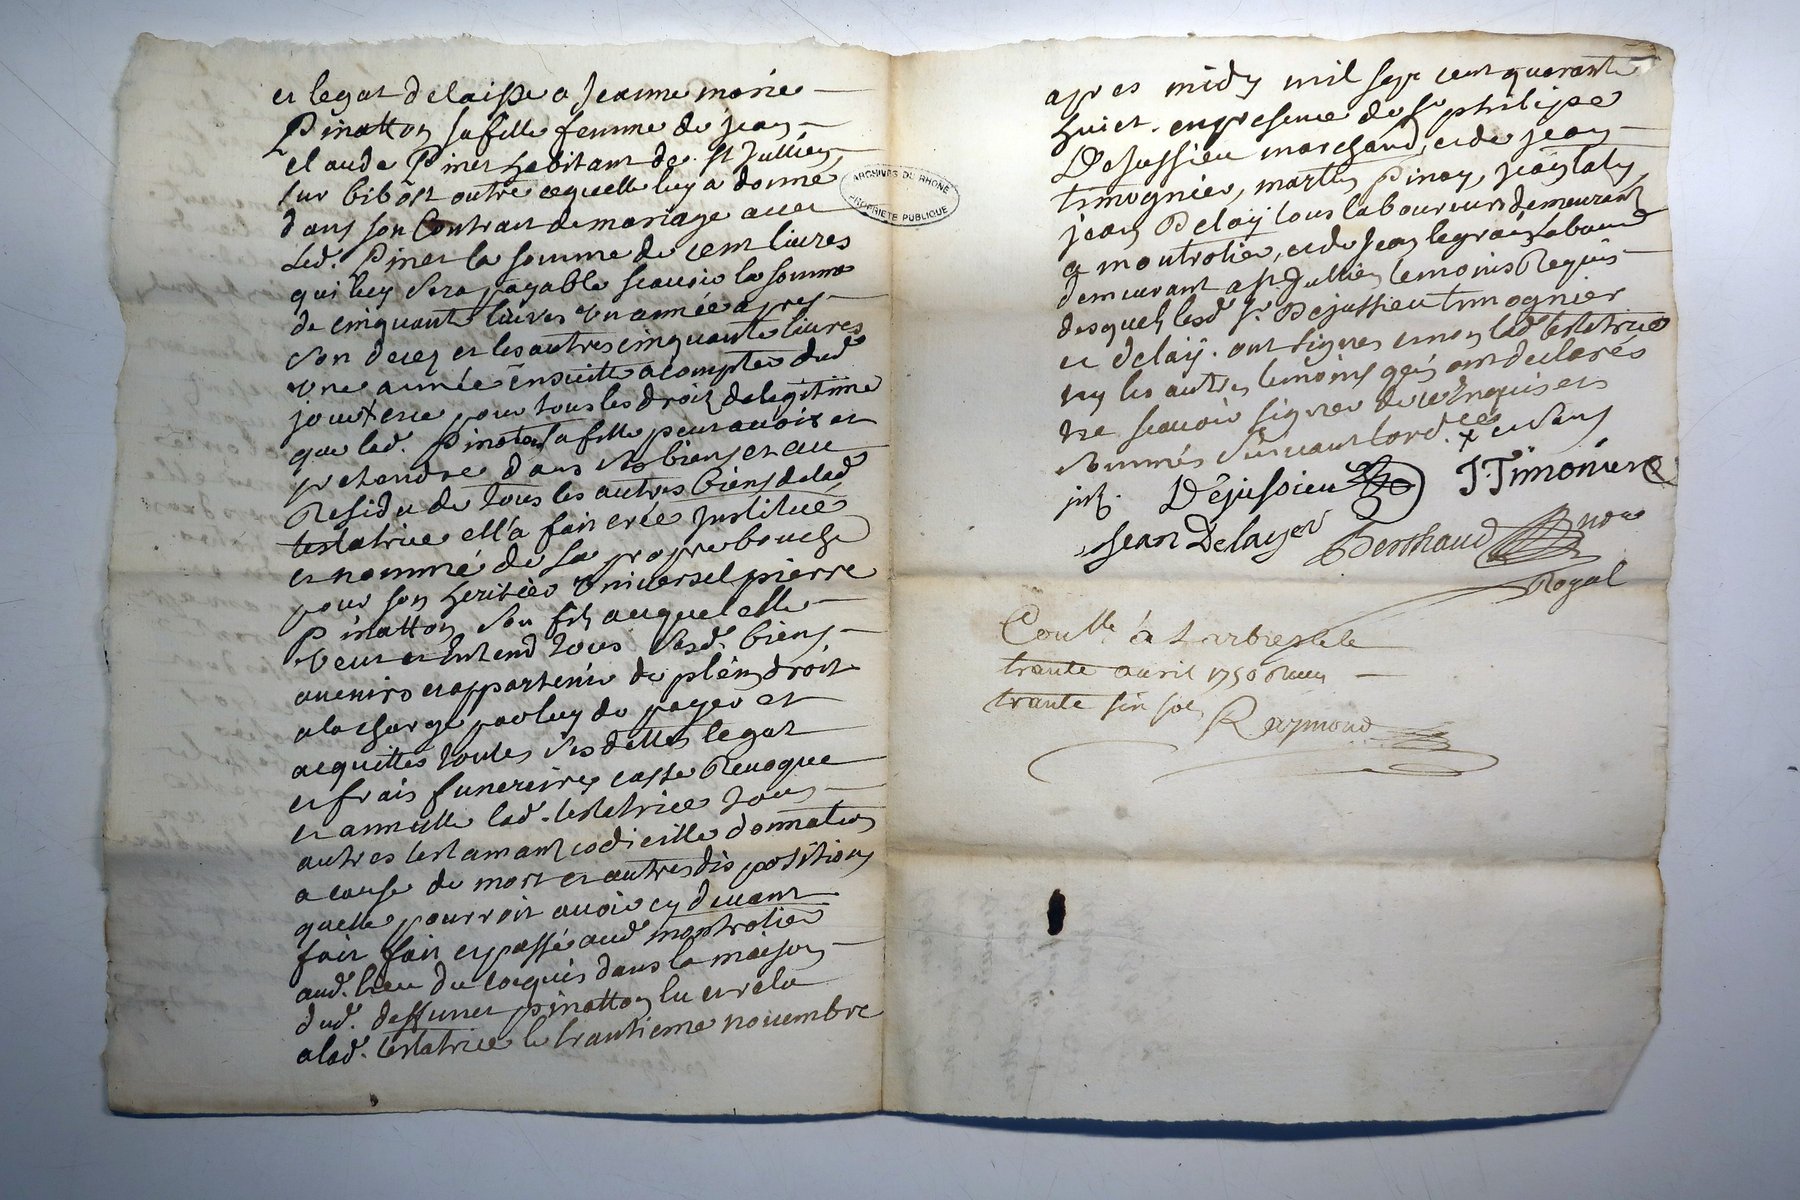 et legat delaisse a Jeanne marie
Pinatton sa fille femme de Jean
claude Piner habitant de St Jullien
sur bibost outre ce quelle luy a donné
dans son Contrat de mariage avec
led. Piner la somme de cent livres
qui luy sera payable scavoir la somme
de cinquante livres un année apres
son decez et les autres cinquante livres
une année ensuitte a compter dud
jour et ce pour tous les droits de legitime
que lad. Pinaton sa fille peut avoir et
pretendre dans ses biens et au
Residu de tous les autres biens de lad
testatrice ell'a fait crée institué
et nommé de sa propre bouche
pour son heritier universel pierre
Pinatton son fils auquel elle
veut et Entend tous sesd. biens
avenirs et appartenir de plein droit
a la charge par luy de payer et
acquitter toutes ses dettes legat
et frais funeraires casse Revoque
et annulle lad. testatrice tous
autres testament codicille donnation
a cause de mort et autres dispositions
quelle pourroit avoir cy devant
fait fait et passé aud montrotier
aud. lieu du dans la maison
dud. deffunct pinatton lu et relu
a lad. testatrice le trantieme novembre
ARCHIVES DU RHONE
PROPRIETE PUBLIQUE
apres midy mil sept cent quarante
huict. en presence de sr philippe
Dejussieu marchand, et de jean
timognier, martin pinay, jean laty,
jean Delaÿ tous laboureurs demeurant
a montrotier, et de jean legrain laboureur
demeurant a st. Jullien temoins Requis
desquels lesd sr. Dejussieu timognier
et delaÿ. ont signes et non lad testatrice
ny les autres temoins qui ont declarés
ne scavoir signer de ce Enquis et
sommés suivant lord.ce et sans
Dejussieu J. Timonier
Jean Delayer Berthaud nore
Royal
Conllé à Larbresle le
trante avril 1750 Receu
trante sols Raymond